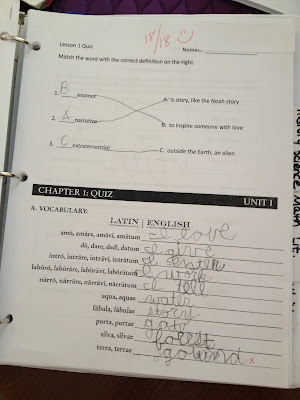 18/18
Lesson 1 Quiz Name:
Match the word with the correct definition on the right.
1. B enamor
A. a story, like the Noah story
2. A narrative
B. to inspire someone with love
3. C extraterrestrial
C. outside the Earth, an alien
CHAPTER 1: QUIZ UNIT I
A. VOCABULARY:
LATIN ENGLISH
amō, amāre, amāvī, amātum I love
dō, dare, dedī, datum I give
intrō, intrāre, intrāvī, intrātum I enter
labōrō, labōrāre, labōrāvī, labōrātum I work
nārrō, nārrāre, nārrāvī, nārrātum I tell
aqua, aquae water
fābula, fābulae story
porta, portae gate
silva, silvae forest
terra, terrae x